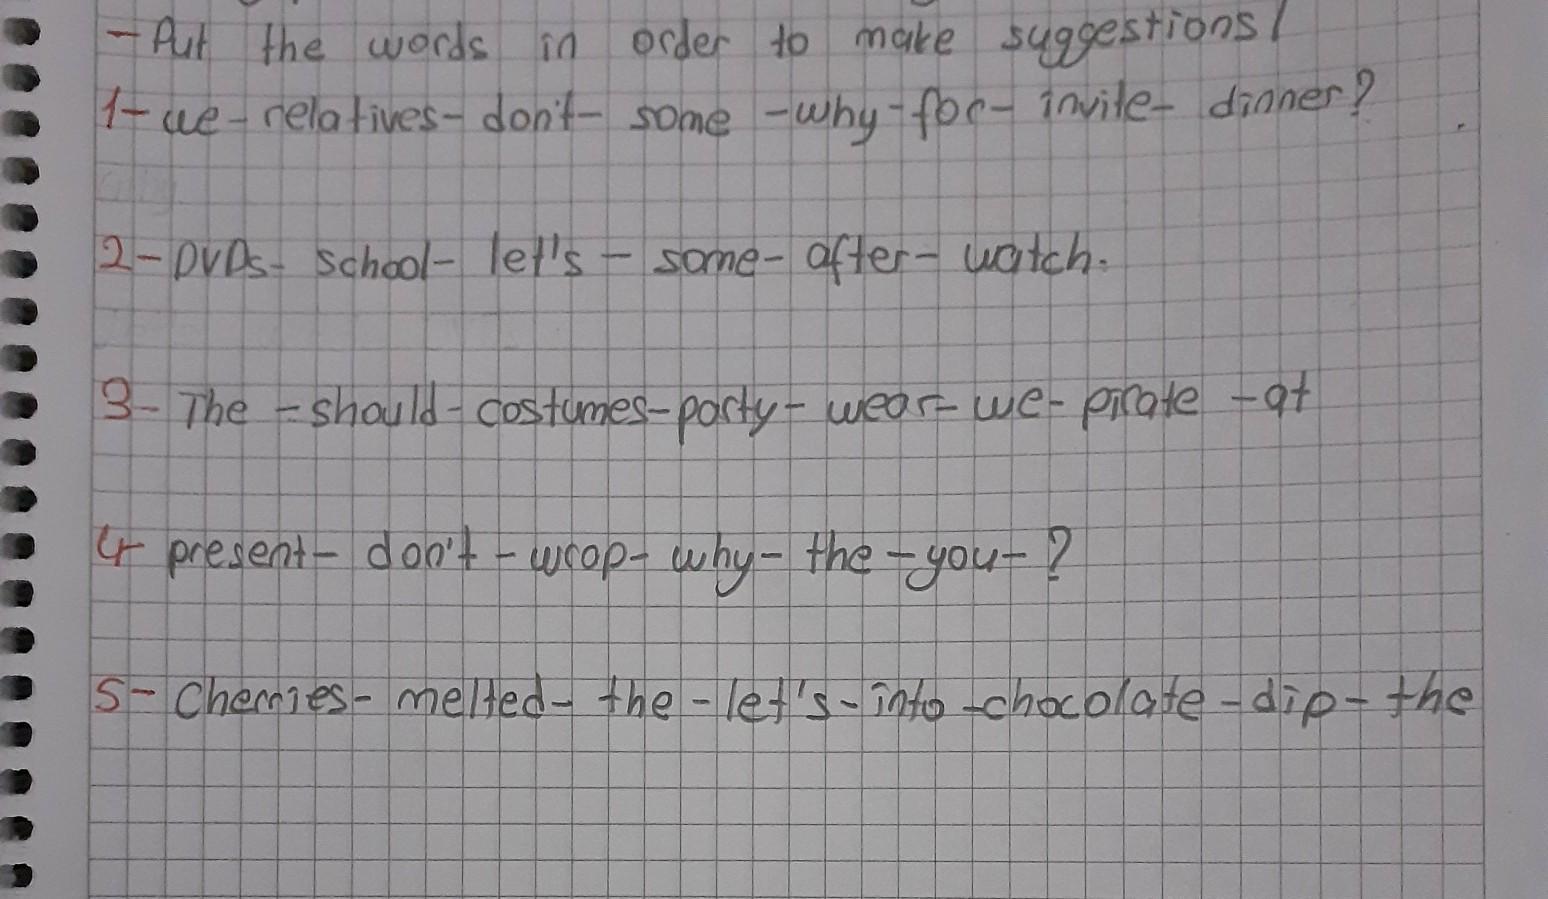 - Put the words in order to make suggestions!
1- we - relatives - don't - some - why - for - invite - dinner?
2- DVDs - school - let's - some - after - watch.
3- The - should - costumes - party - wear - we - pirate - at
4- present - don't - wrap - why - the - you - ?
5- Cherries - melted - the - let's - into - chocolate - dip - the